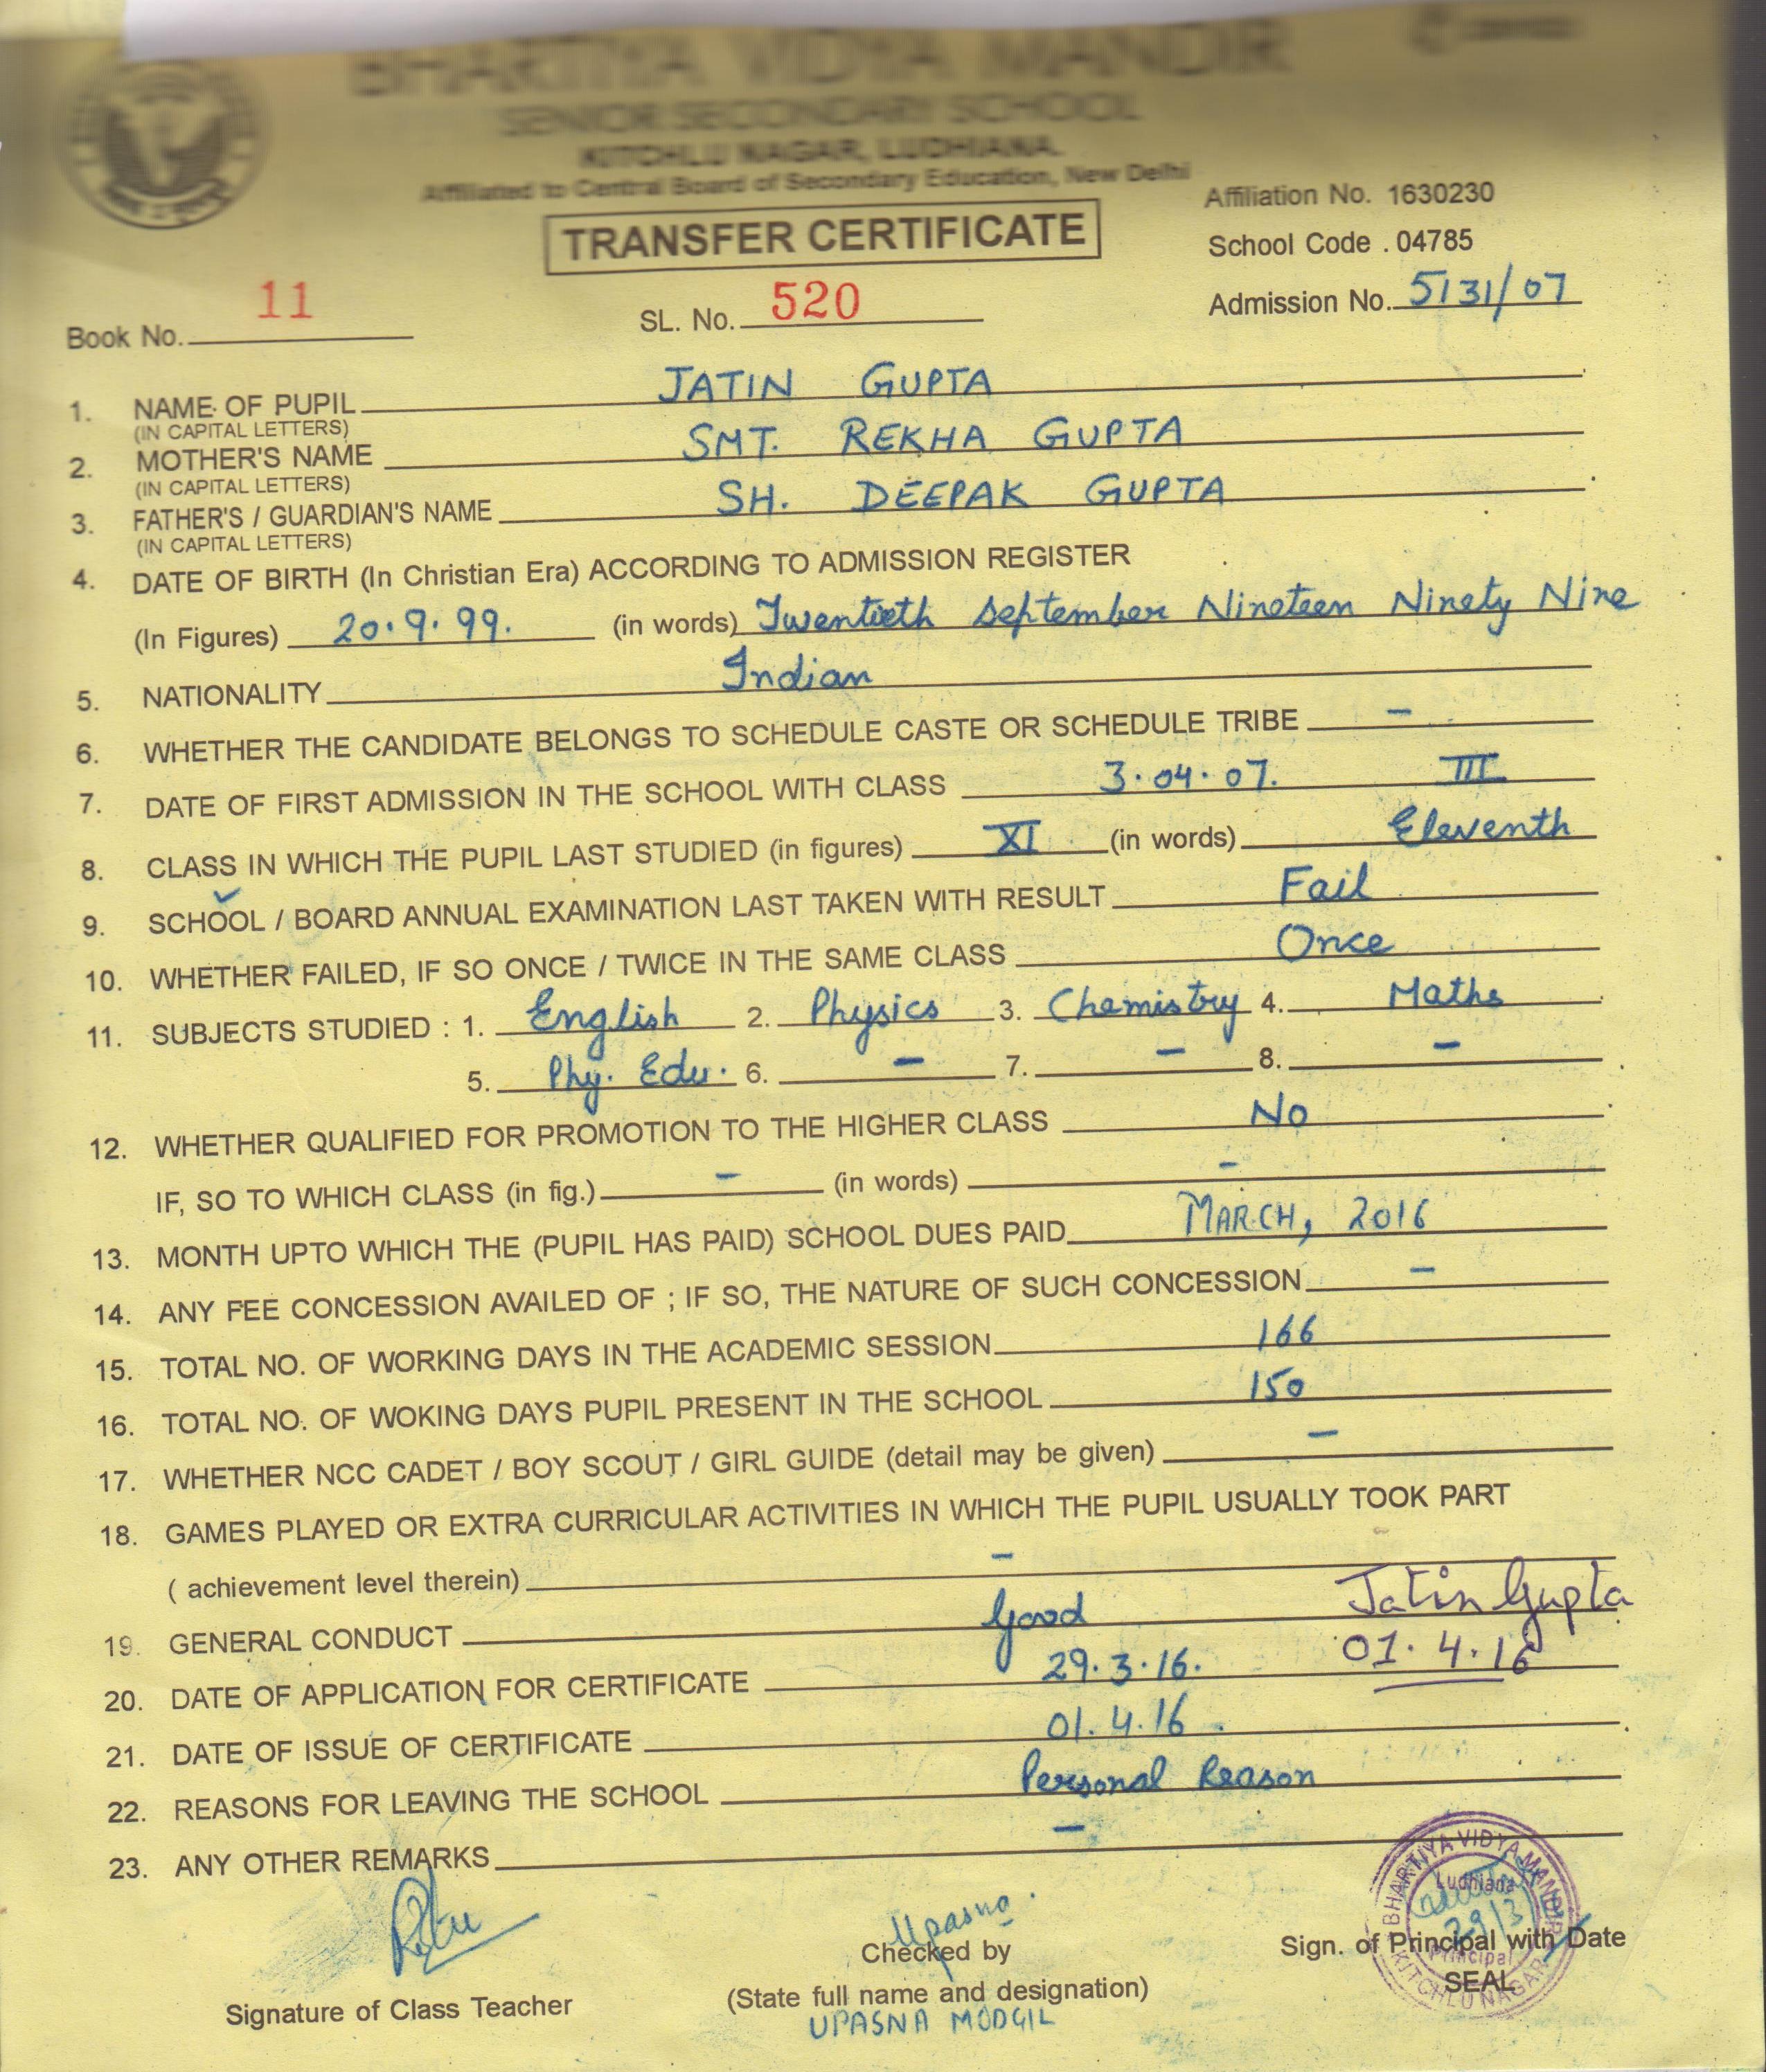 BHARTIYA VIDYA MANDIR
SENIOR SECONDARY SCHOOL
KITCHLU NAGAR, LUDHIANA.
Affiliated to Central Board of Secondary Education, New Delhi
Affiliation No. 1630230
TRANSFER CERTIFICATE
School Code . 04785
Book No. 11 SL. No. 520 Admission No. 5131/07
1. NAME OF PUPIL JATIN GUPTA
(IN CAPITAL LETTERS)
2. MOTHER'S NAME SMT. REKHA GUPTA
(IN CAPITAL LETTERS)
3. FATHER'S / GUARDIAN'S NAME SH. DEEPAK GUPTA
(IN CAPITAL LETTERS)
4. DATE OF BIRTH (In Christian Era) ACCORDING TO ADMISSION REGISTER
(In Figures) 20.9.99. (in words) Twentieth September Nineteen Ninety Nine
5. NATIONALITY Indian
6. WHETHER THE CANDIDATE BELONGS TO SCHEDULE CASTE OR SCHEDULE TRIBE -
7. DATE OF FIRST ADMISSION IN THE SCHOOL WITH CLASS 3.04.07. III
8. CLASS IN WHICH THE PUPIL LAST STUDIED (in figures) XI (in words) Eleventh
9. SCHOOL / BOARD ANNUAL EXAMINATION LAST TAKEN WITH RESULT Fail
10. WHETHER FAILED, IF SO ONCE / TWICE IN THE SAME CLASS Once
11. SUBJECTS STUDIED : 1. English 2. Physics 3. Chemistry 4. Maths
5. Phy. Edu. 6. - 7. - 8. -
12. WHETHER QUALIFIED FOR PROMOTION TO THE HIGHER CLASS No
IF, SO TO WHICH CLASS (in fig.) - (in words) -
13. MONTH UPTO WHICH THE (PUPIL HAS PAID) SCHOOL DUES PAID MARCH, 2016
14. ANY FEE CONCESSION AVAILED OF ; IF SO, THE NATURE OF SUCH CONCESSION -
15. TOTAL NO. OF WORKING DAYS IN THE ACADEMIC SESSION 166
16. TOTAL NO. OF WOKING DAYS PUPIL PRESENT IN THE SCHOOL 150
17. WHETHER NCC CADET / BOY SCOUT / GIRL GUIDE (detail may be given) -
18. GAMES PLAYED OR EXTRA CURRICULAR ACTIVITIES IN WHICH THE PUPIL USUALLY TOOK PART
( achievement level therein) -
19. GENERAL CONDUCT Good Jatin Gupta
20. DATE OF APPLICATION FOR CERTIFICATE 29.3.16. 01.4.16
21. DATE OF ISSUE OF CERTIFICATE 01.4.16.
22. REASONS FOR LEAVING THE SCHOOL Personal Reason
23. ANY OTHER REMARKS -
BHARTIYA VIDYA MANDIR
Ludhiana
Principal
KITCHLU NAGAR
Upasna
Checked by
Sign. of Principal with Date
SEAL
Signature of Class Teacher
(State full name and designation)
UPASNA MODGIL